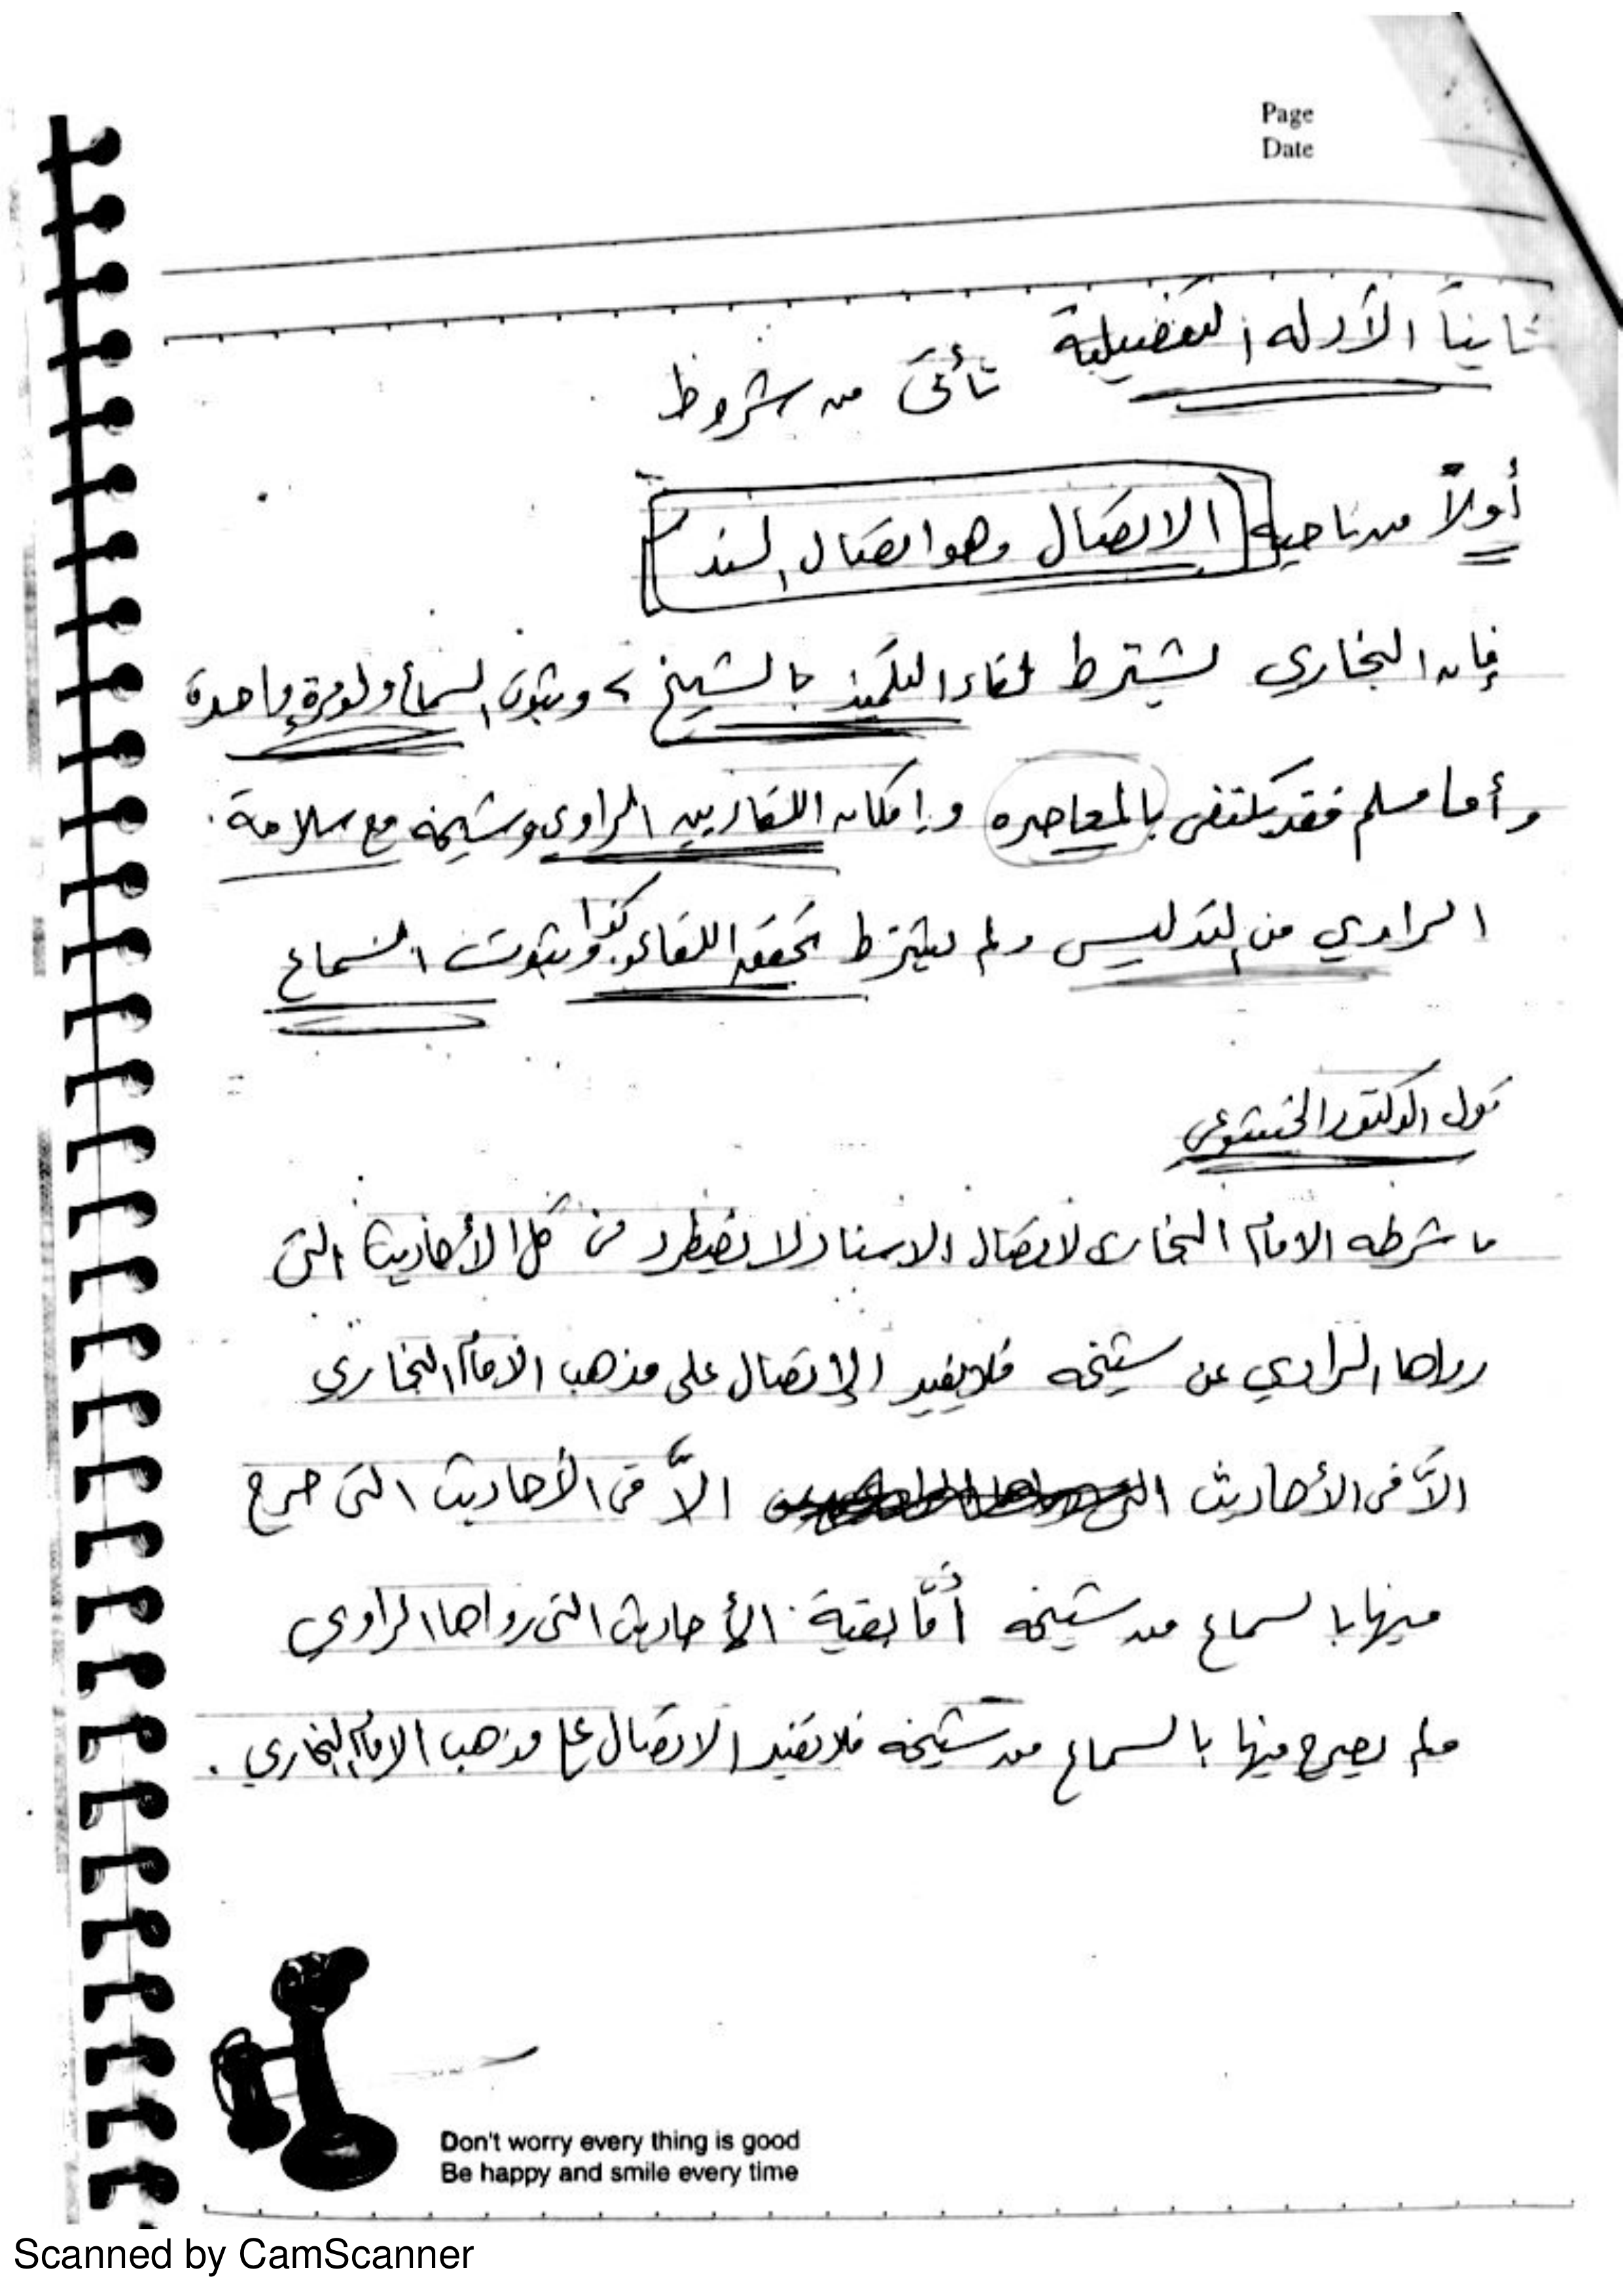 Page
Date
ثانياً الأدله التفضيلية تأتى من شروط
أولاً من ناحية الاتصال وهو اتصال السند
فإن البخاري يشترط لقاء التلميذ بالشيخ، وثبوت السماع ولو مرة واحدة
وأما مسلم فقد يكتفى بالمعاصره وإمكان اللقاء بين الراوي وشيخه مع سلامة
الراوي من التدليس ولم يشترط تحقق اللقاء وثبوت السماع
قول الدكتور الخشوعى
ما شرطه الامام البخارى لاتصال الاسناد لا يضطرد فى كل الأحاديث التى
رواها الراوي عن شيخه فلا يفيد الإتصال على مذهب الامام البخاري
الاَّ فى الأحاديث الاَّ فى الأحاديث التى صرح
فيها بالسماع من شيخه أمَّا بقية الأحاديث التى رواها الراوي
ولم يصرح فيها بالسماع من شيخه فلا تفيد الاتصال على مذهب الامام البخاري.
Don't worry every thing is good
Be happy and smile every time
Scanned by CamScanner